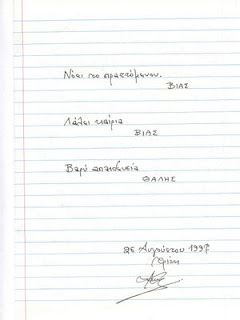 Νόει το πραττόμενον.
ΒΙΑΣ
Λάλει καίρια
ΒΙΑΣ
Βαρύ απαιδευσία
ΘΑΛΗΣ
26 Αυγούστου 1997